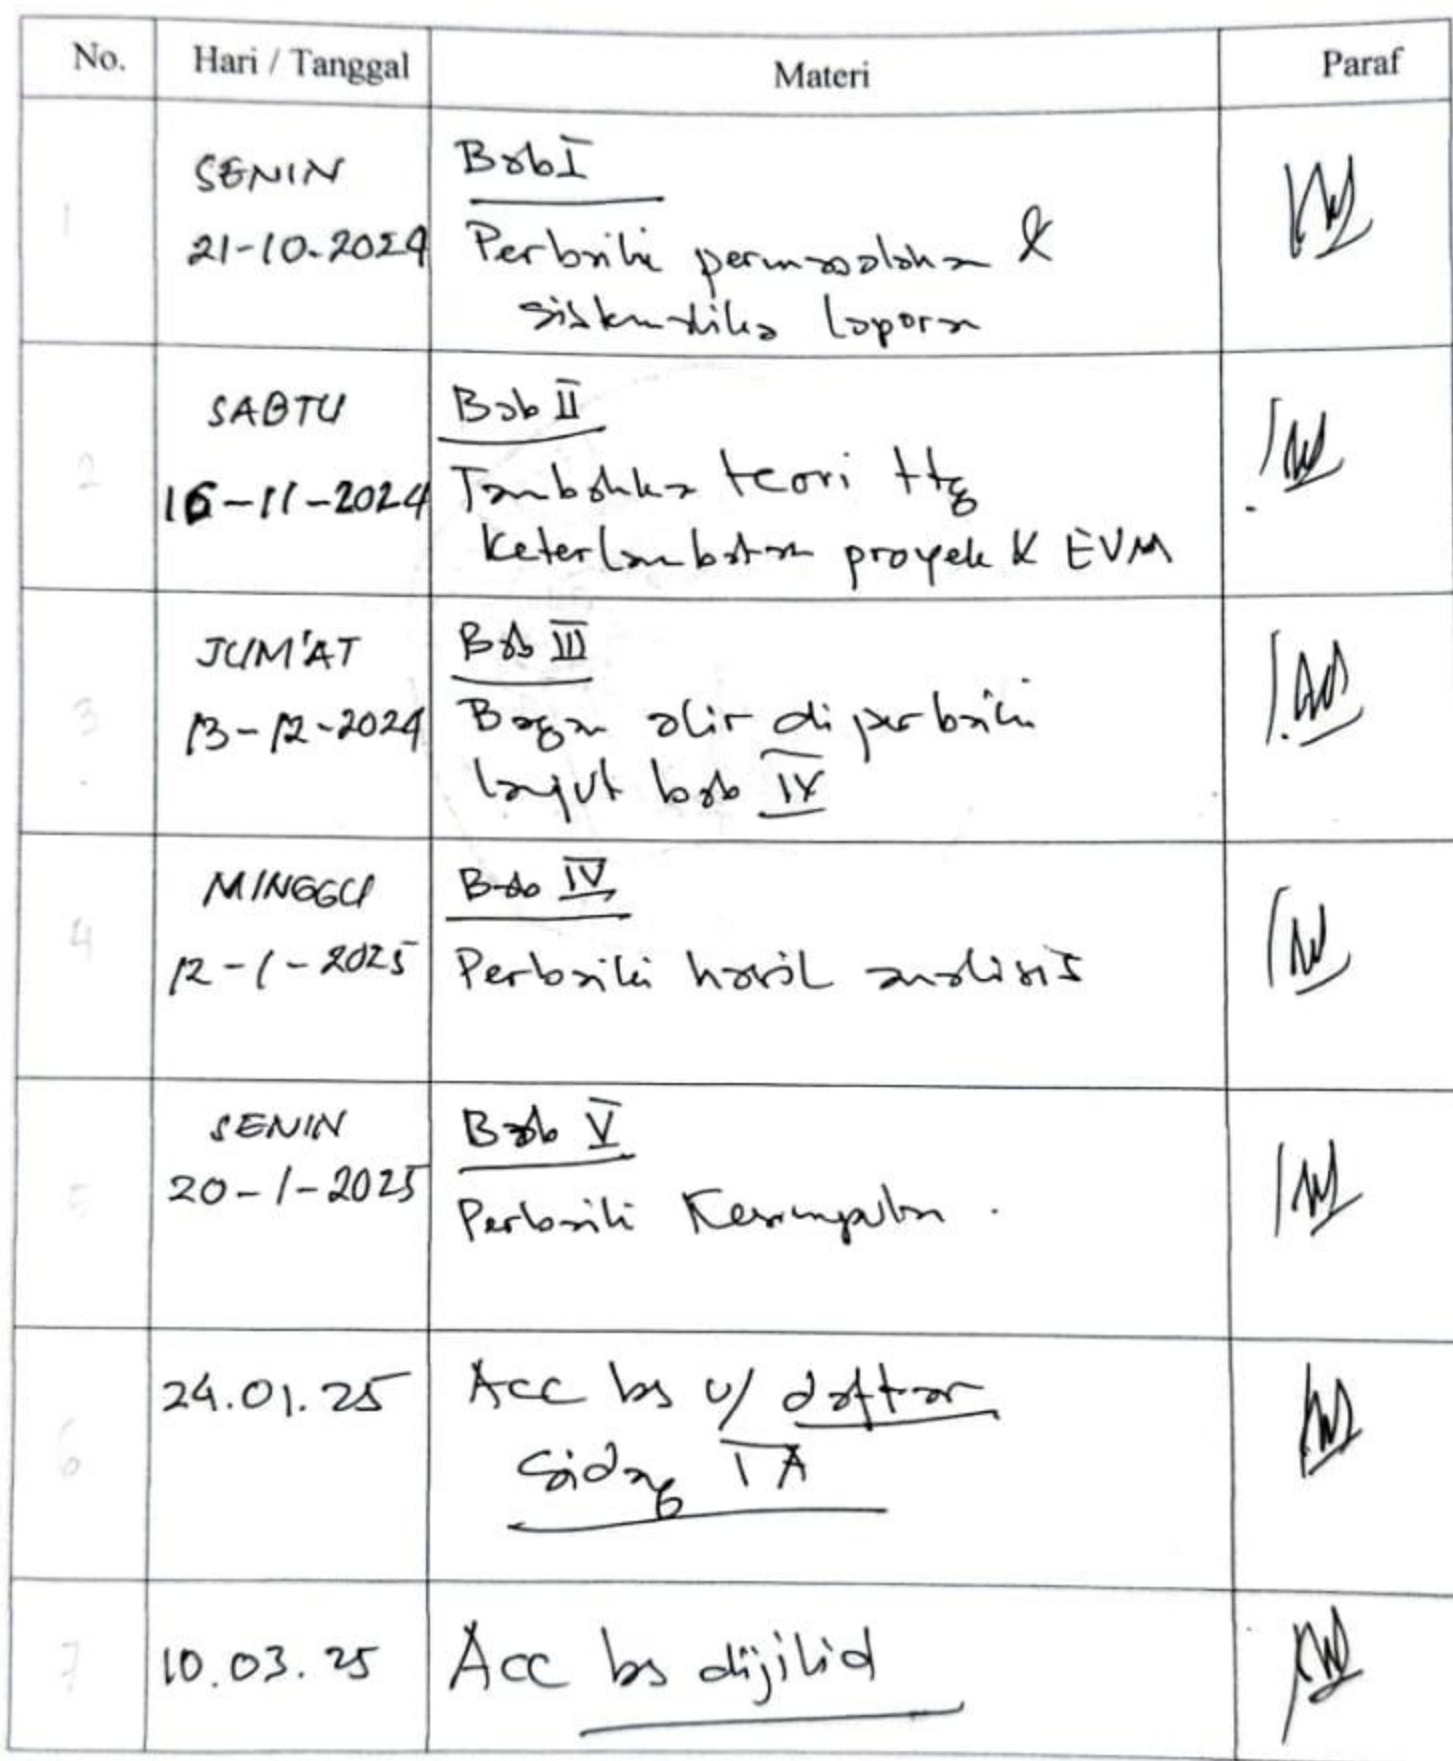 No. Hari / Tanggal Materi Paraf
1 SENIN Bab I
21-10-2024 Perbaiki permasalahan &
sistematika laporan
2 SABTU Bab II
16-11-2024 Tambahkan teori ttg
keterlambatan proyek & EVM
3 JUM'AT Bab III
13-12-2024 Bagan alir diperbaiki
lanjut bab IV
4 MINGGU Bab IV
12-1-2025 Perbaiki hasil analisis
5 SENIN Bab V
20-1-2025 Perbaiki Kesimpulan.
6 24.01.25 Acc bs u/ daftar
Sidang TA
7 10.03.25 Acc bs dijilid